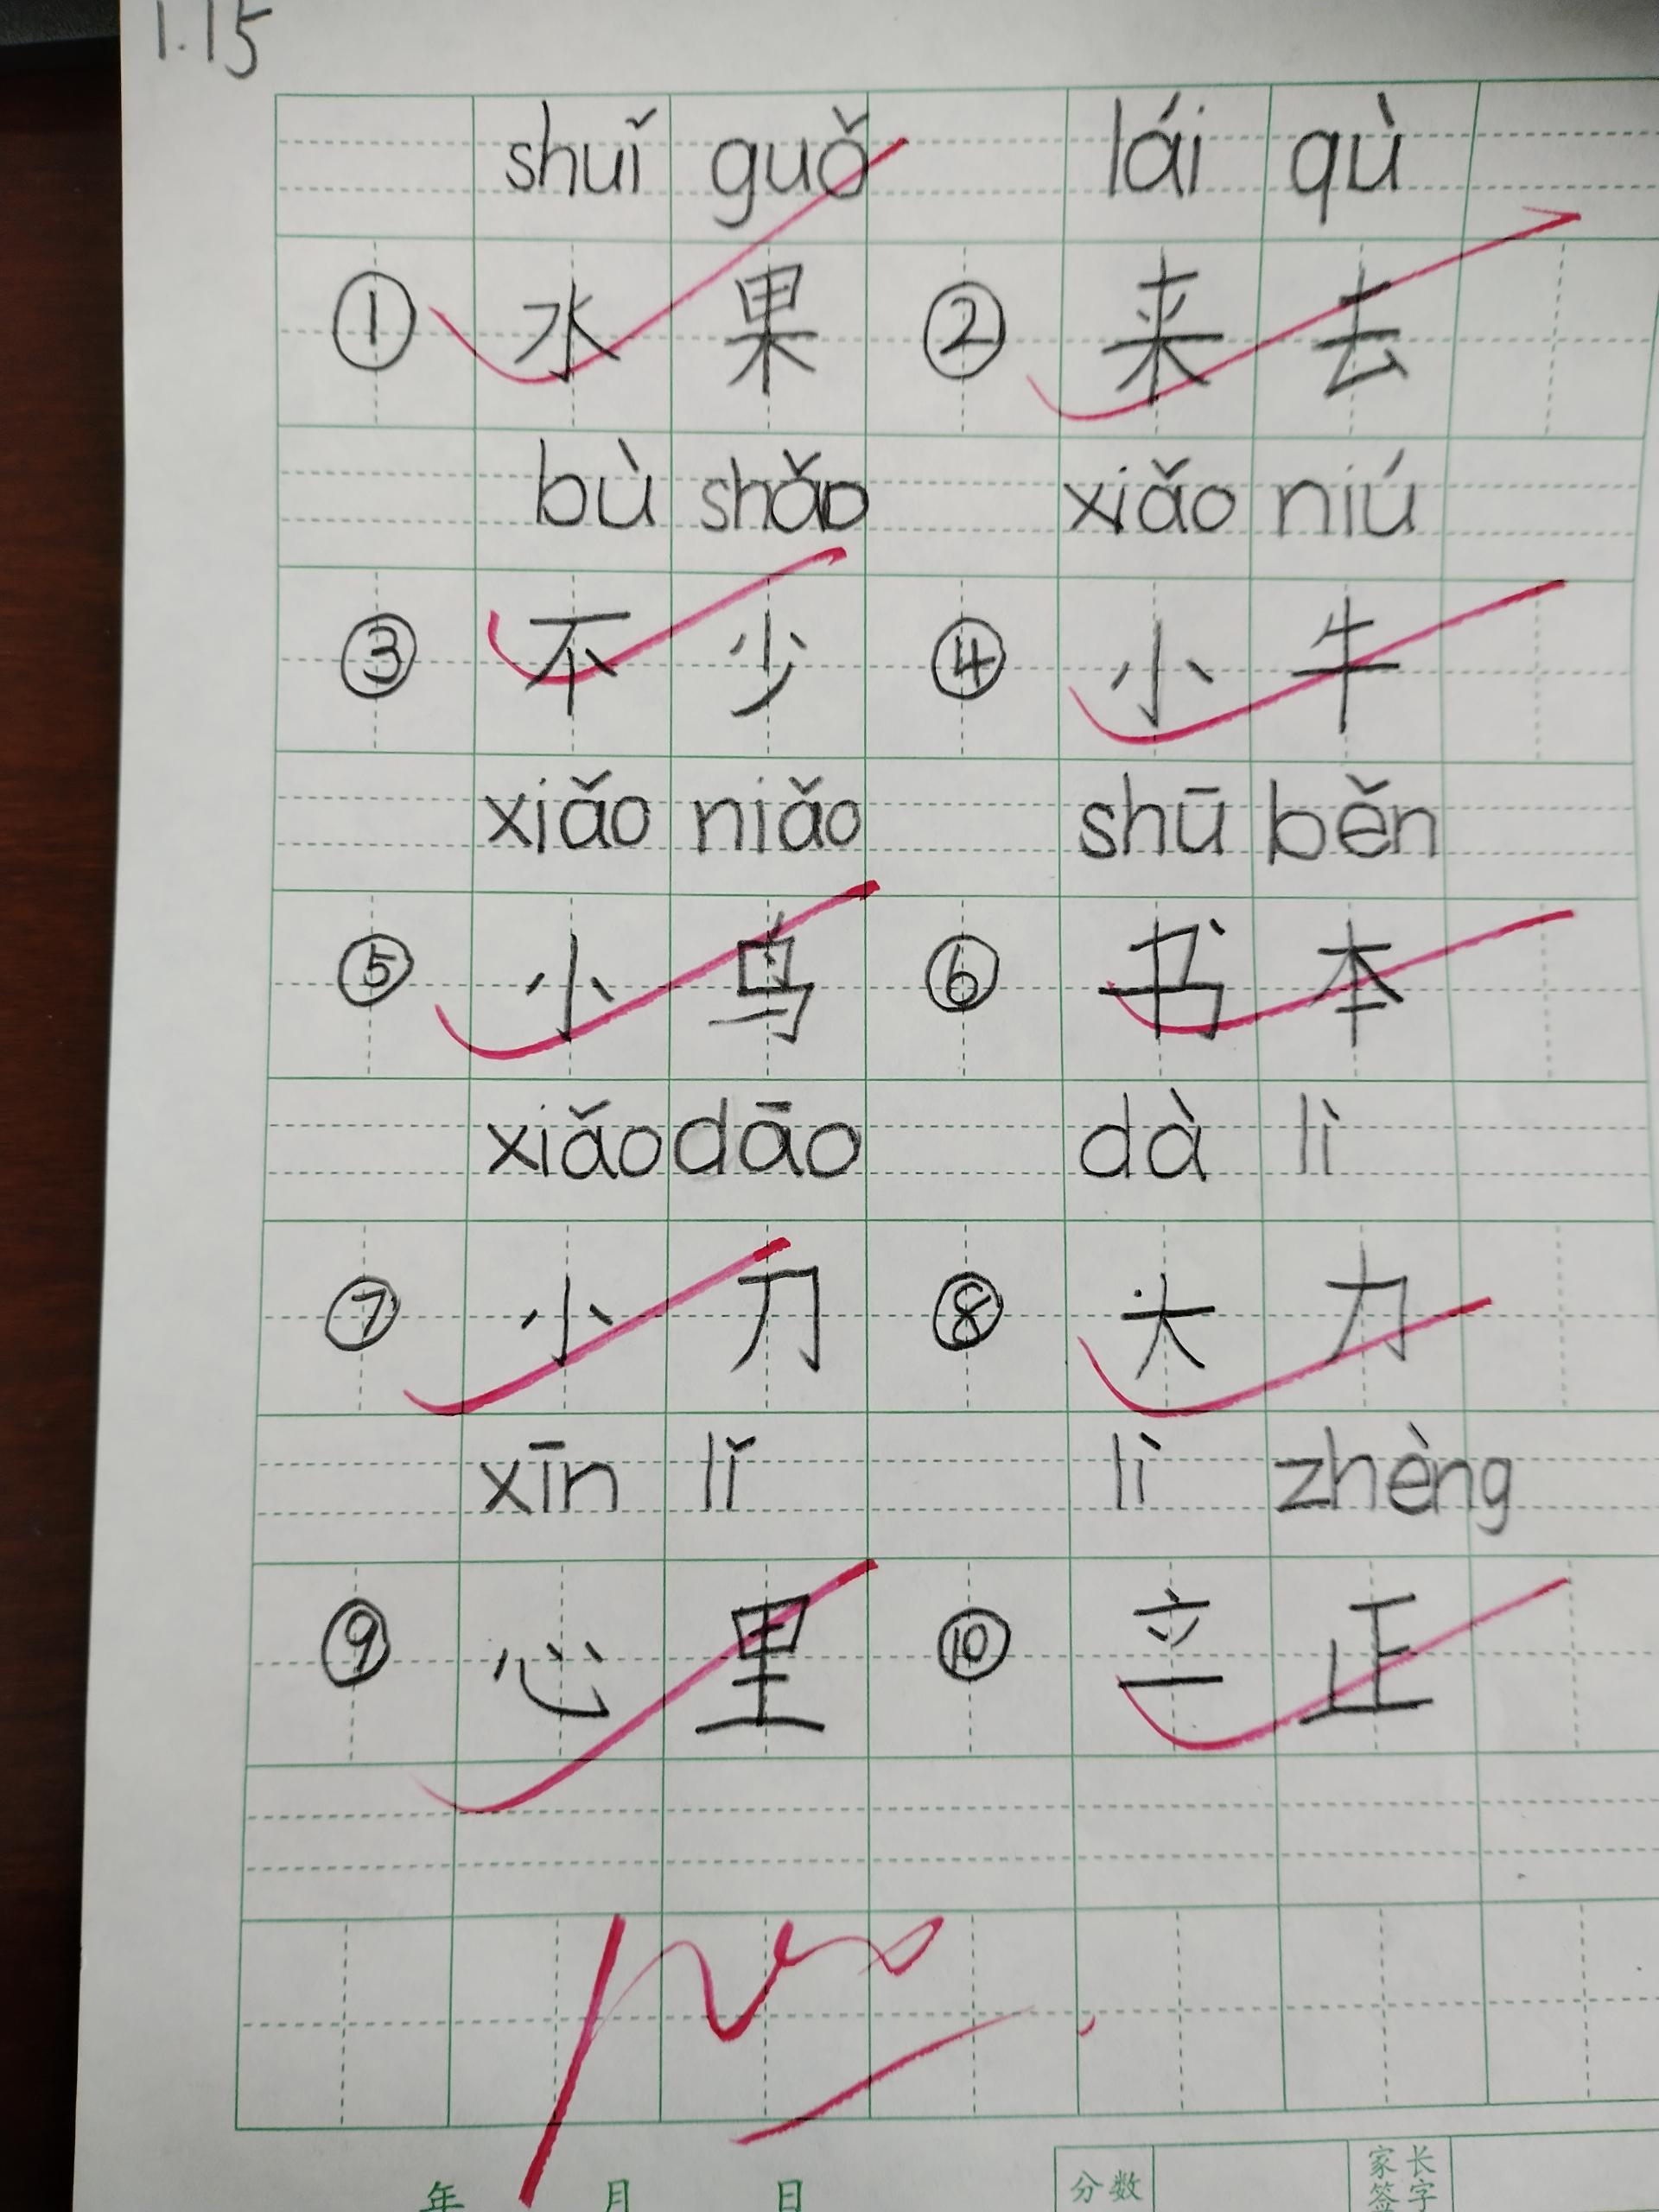 1.15
shuǐ guǒ lái qù
① 水 果 ② 来 去
bù shǎo xiǎo niú
③ 不 少 ④ 小 牛
xiǎo niǎo shū běn
⑤ 小 鸟 ⑥ 书 本
xiǎo dāo dà lì
⑦ 小 刀 ⑧ 大 力
xīn lǐ lì zhèng
⑨ 心 里 ⑩ 立 正
100
年 月 日 分数 家长签字